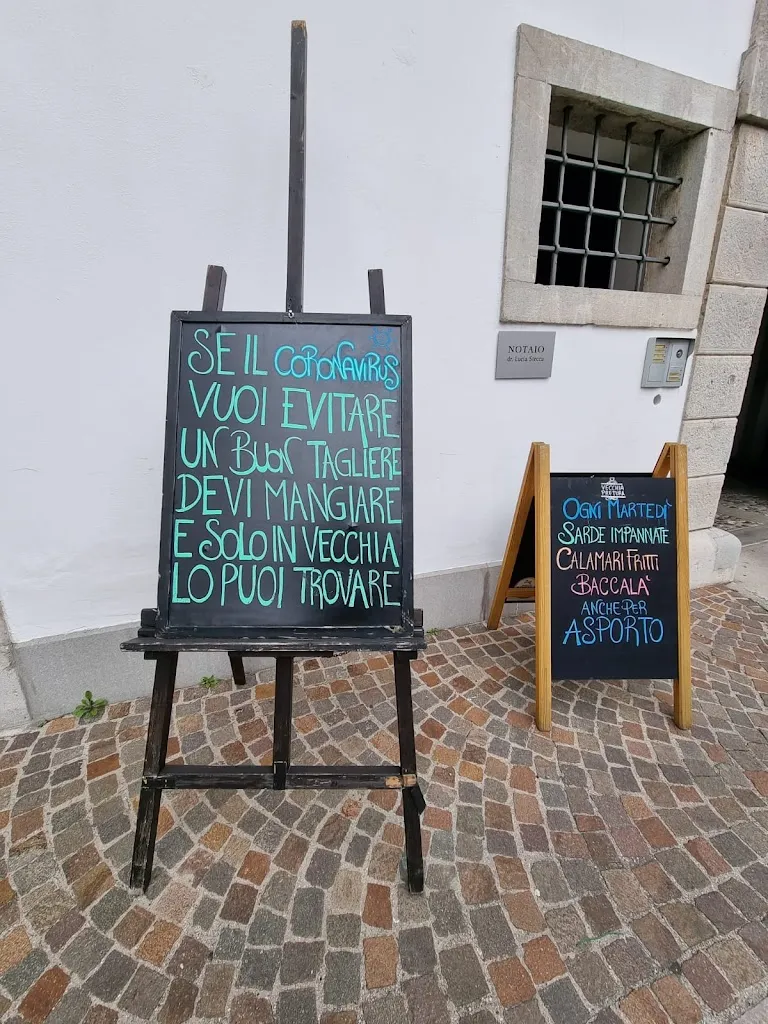 SE IL CORONAVIRUS
VUOI EVITARE
UN BUON TAGLIERE
DEVI MANGIARE
E SOLO IN VECCHIA
LO PUOI TROVARE
NOTAIO
dr. Lucia Sirocco
VECCHIA
PRETURA
OGNI MARTEDI'
SARDE IMPANNATE
CALAMARI FRITTI
BACCALA'
ANCHE PER
ASPORTO